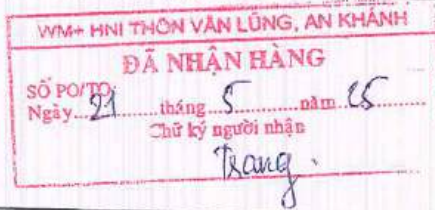 WM+ HNI THÔN VÂN LŨNG, AN KHÁNH
ĐÃ NHẬN HÀNG
SỐ PO/TO:
Ngày 21 tháng 5 năm 25
Chữ ký người nhận
Trang